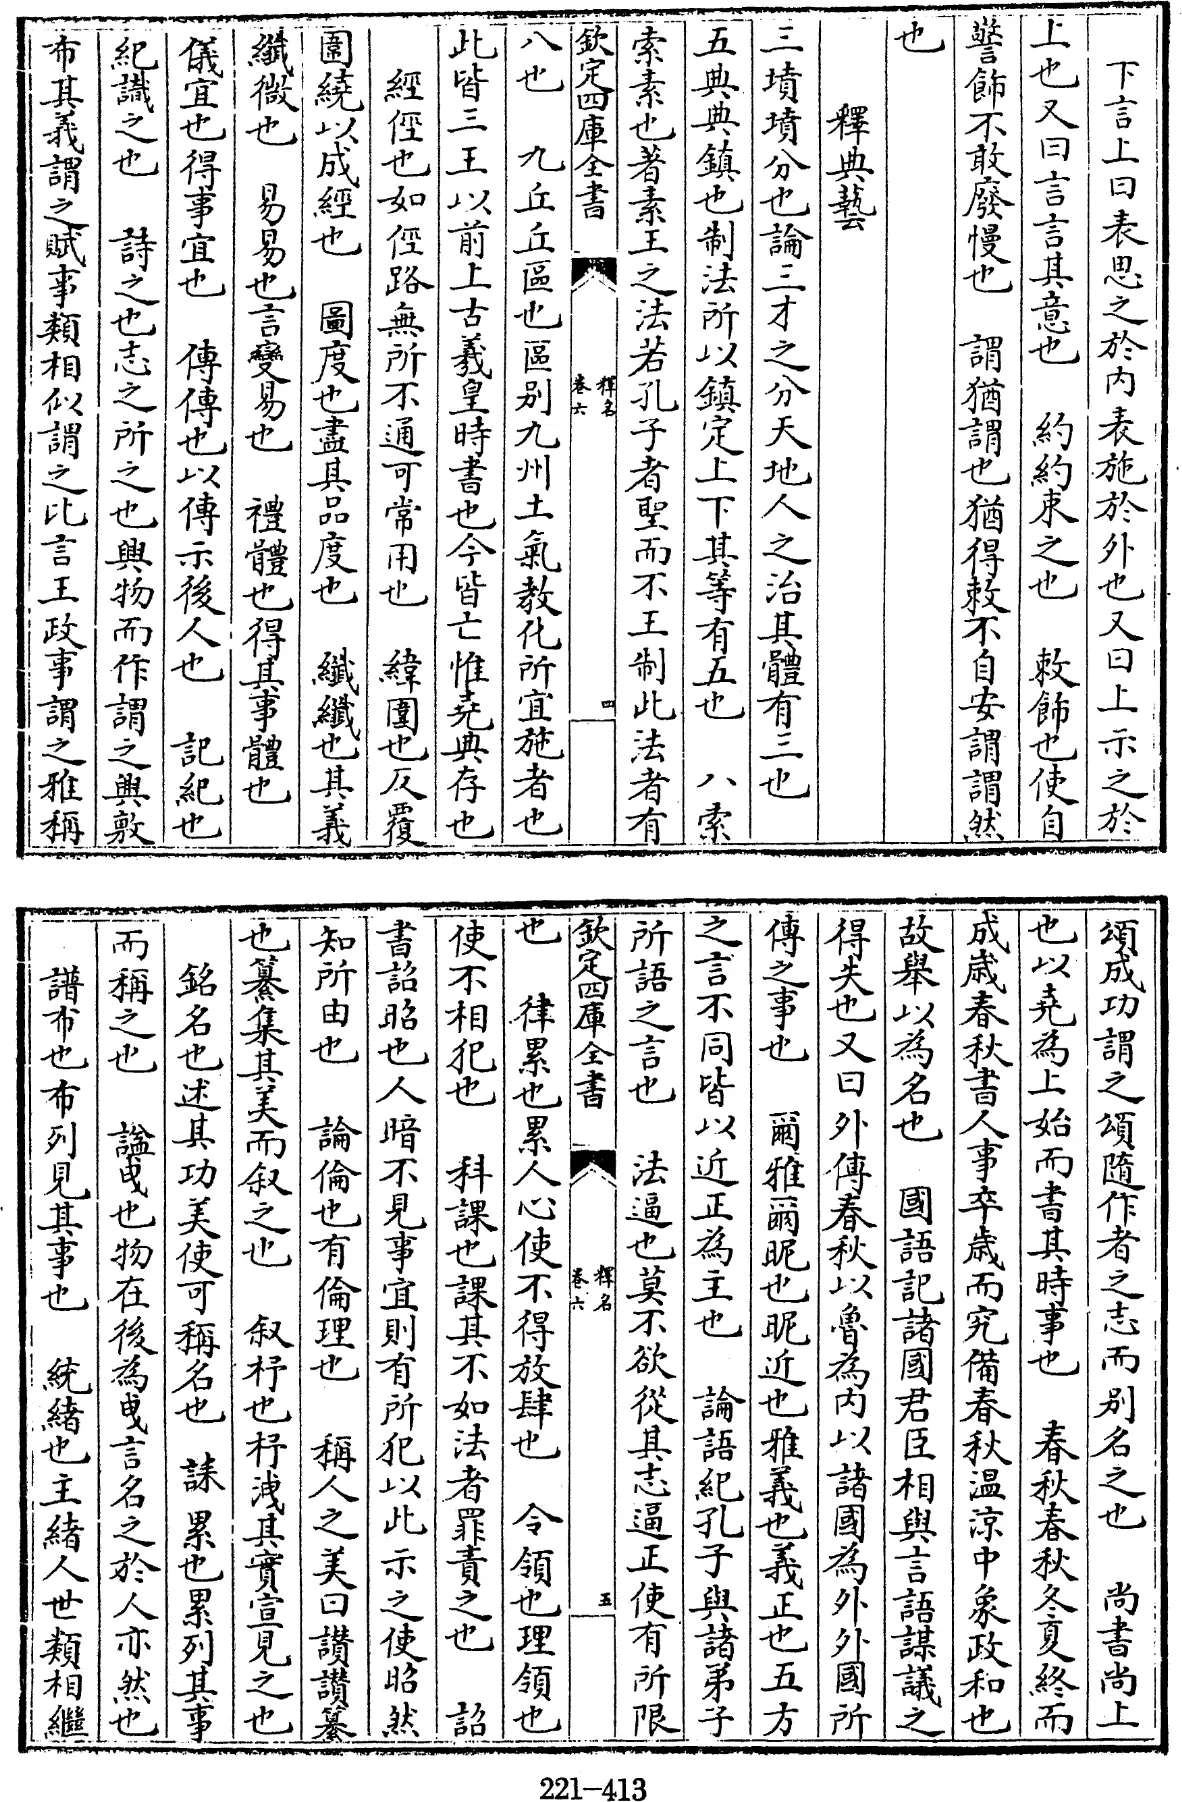 下言上曰表思之於內表施於外也又曰上示之於
上也又曰言言其意也　約約束之也　敕飾也使自
警飾不敢廢慢也　謂猶謂也猶得敕不自安謂謂然
也
釋典藝
三墳墳分也論三才之分天地人之治其體有三也
五典典鎮也制法所以鎮定上下其等有五也　八索
索素也著素王之法若孔子者聖而不王制此法者有
欽定四庫全書
釋名
卷六
四
八也　九丘丘區也區别九州土氣教化所宜施者也
此皆三王以前上古羲皇時書也今皆亡惟堯典存也
經徑也如徑路無所不通可常用也　緯圍也反覆
圍繞以成經也　圖度也盡其品度也　纖纖也其義
纖微也　易易也言變易也　禮體也得其事體也
儀宜也得事宜也　傳傳也以傳示後人也　記紀也
紀識之也　詩之也志之所之也興物而作謂之興敷
布其義謂之賦事類相似謂之比言王政事謂之雅稱
頌成功謂之頌隨作者之志而别名之也　尚書尚上
也以堯為上始而書其時事也　春秋春秋冬夏終而
成歲春秋書人事卒歲而究備春秋温涼中象政和也
故舉以為名也　國語記諸國君臣相與言語謀議之
得失也又曰外傳春秋以魯為内以諸國為外外國所
傳之事也　爾雅爾昵也昵近也雅義也義正也五方
之言不同皆以近正為主也　論語紀孔子與諸弟子
所語之言也　法逼也莫不欲從其志逼正使有所限
欽定四庫全書
釋名
卷六
五
也　律累也累人心使不得放肆也　令領也理領也
使不相犯也　科課也課其不如法者罪責之也　詔
書詔昭也人暗不見事宜則有所犯以此示之使昭然
知所由也　論倫也有倫理也　稱人之美曰讚讚纂
也纂集其美而叙之也　叙杼也杼洩其實宣見之也
銘名也述其功美使可稱名也　誄累也累列其事
而稱之也　謚曳也物在後為曳言名之於人亦然也
譜布也布列見其事也　統緒也主緒人世類相繼
221-413